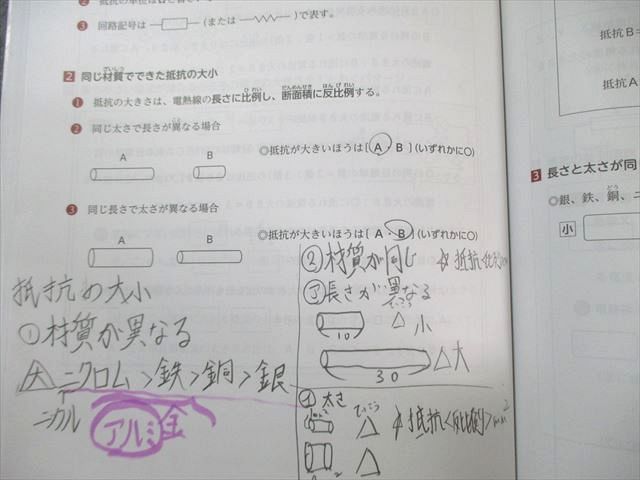 ❷ 抵抗の単位は
❸ 回路記号は (または )で表す。
2 同じ材質でできた抵抗の大小
❶ 抵抗の大きさは、電熱線の長さに比例し、断面積に反比例する。
❷ 同じ太さで長さが異なる場合
A B
◎抵抗が大きいほうは[ A ・ B ](いずれかに○)
❸ 同じ長さで太さが異なる場合
A B
◎抵抗が大きいほうは[ A ・ B ](いずれかに○)
抵抗の大小
①材質が異なる
大 ニクロム>鉄>銅>銀
ニカル
アルミ 金
②材質が同じ
☆抵抗<比例>
㋐長さが異なる
10 △小
30 △大
㋑太さ
☆抵抗<反比例>
抵抗B=
抵抗A
3 長さと太さが同
◎銀、鉄、銅、ニ
小